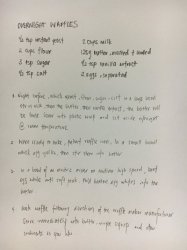 OVERNIGHT WAFFLES
½ tsp instant yeast 2 cups milk
2 cups flour 125g butter, melted & cooled
3 tsp sugar ½ tsp vanilla extract
½ tsp salt 2 eggs, separated
1. Night before, whisk yeast, flour, sugar, salt in a large bowl
stir in milk, then the butter, then vanilla extract, the batter will
be thick. Cover with plastic wrap and set aside overnight
@ room temperature.
2. When ready to make, preheat waffle iron. In a small bowl
whisk egg yolks, then stir them into batter
3. In a bowl of an electric mixer on medium high speed, beat
egg whites until soft peak. Fold beaten egg whites into the
batter
4. Cook waffles following directions of the waffle maker manufacturer
Serve immediately with butter, maple syrup and other